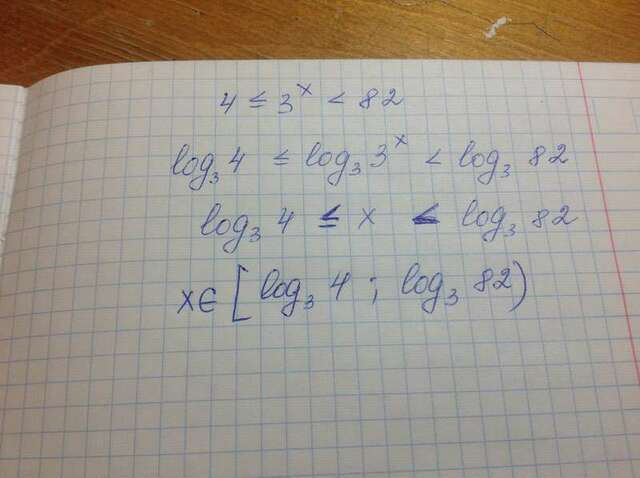 4 ≤ 3ˣ < 82
log₃ 4 ≤ log₃ 3ˣ < log₃ 82
log₃ 4 ≤ x < log₃ 82
x∈ [log₃ 4 ; log₃ 82)